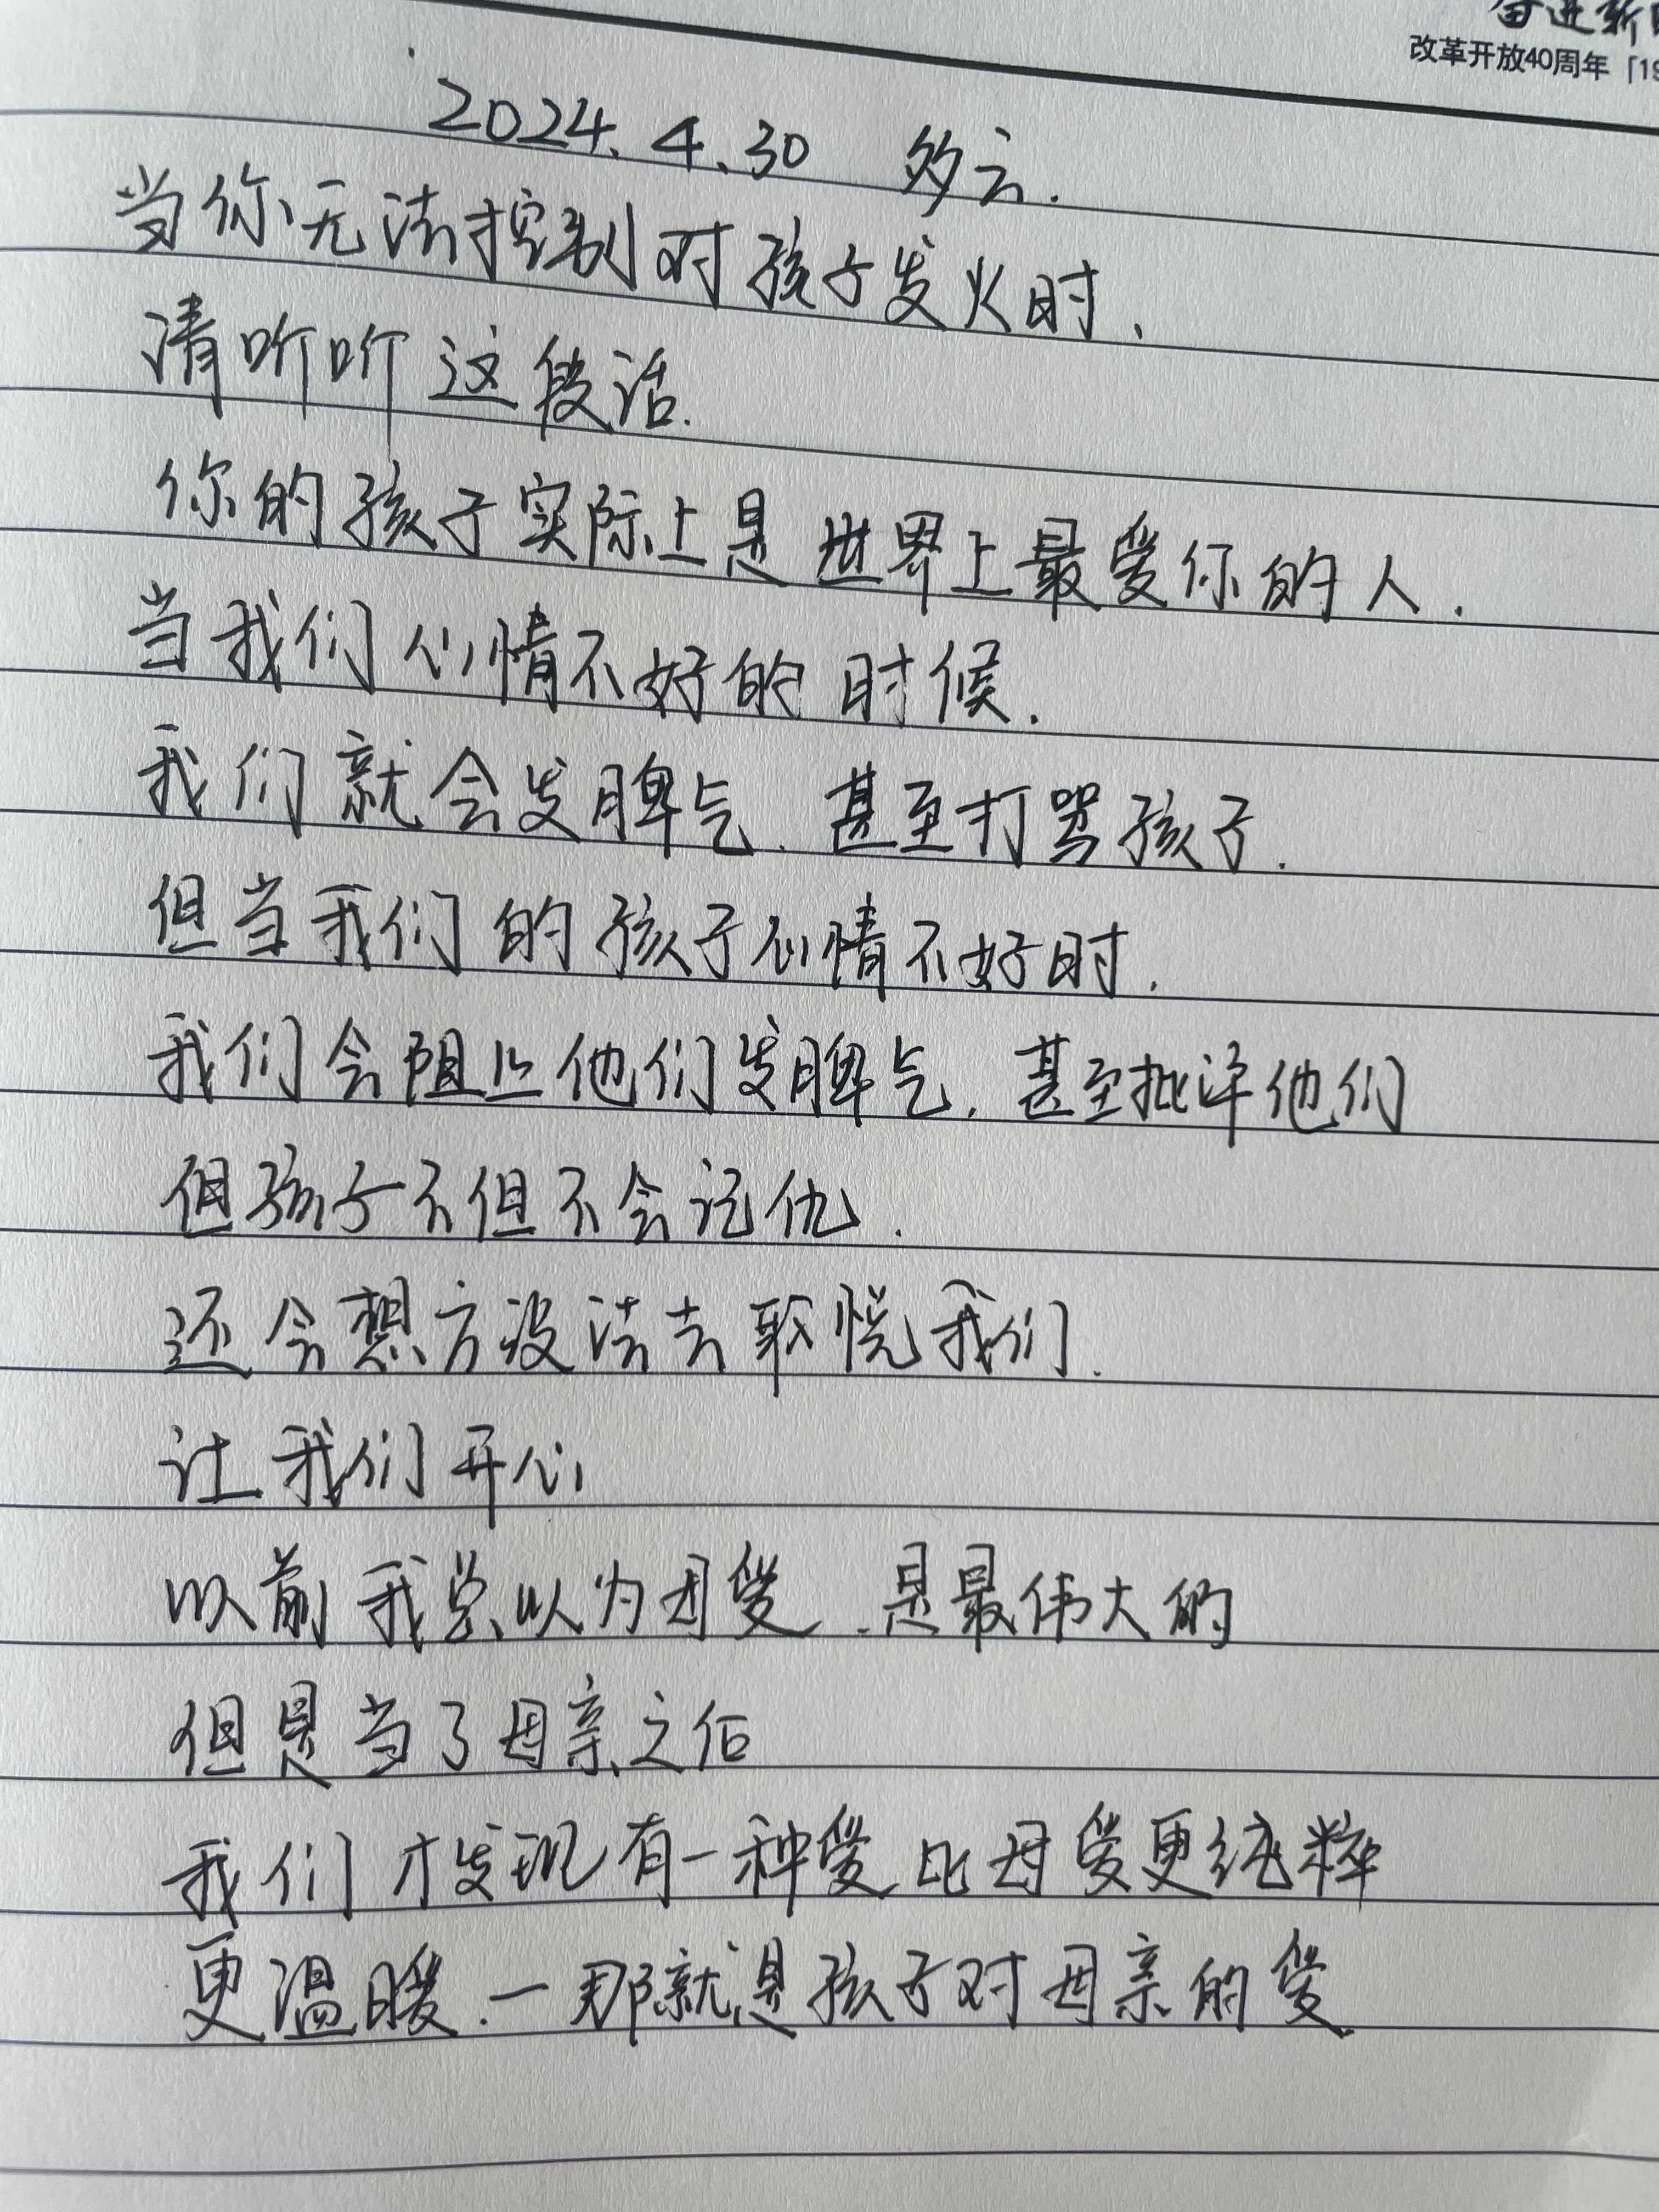 奋进新
改革开放40周年「19
2024.4.30 多云.
当你无法控制对孩子发火时,
请听听这段话.
你的孩子实际上是世界上最爱你的人.
当我们心情不好的时候.
我们就会发脾气.甚至打骂孩子.
但当我们的孩子心情不好时.
我们会阻止他们发脾气.甚至批评他们
但孩子不但不会记仇.
还会想方设法去取悦我们.
让我们开心
以前我总以为母爱.是最伟大的
但是当了母亲之后
我们才发现有一种爱比母爱更纯粹
更温暖.一那就是孩子对母亲的爱